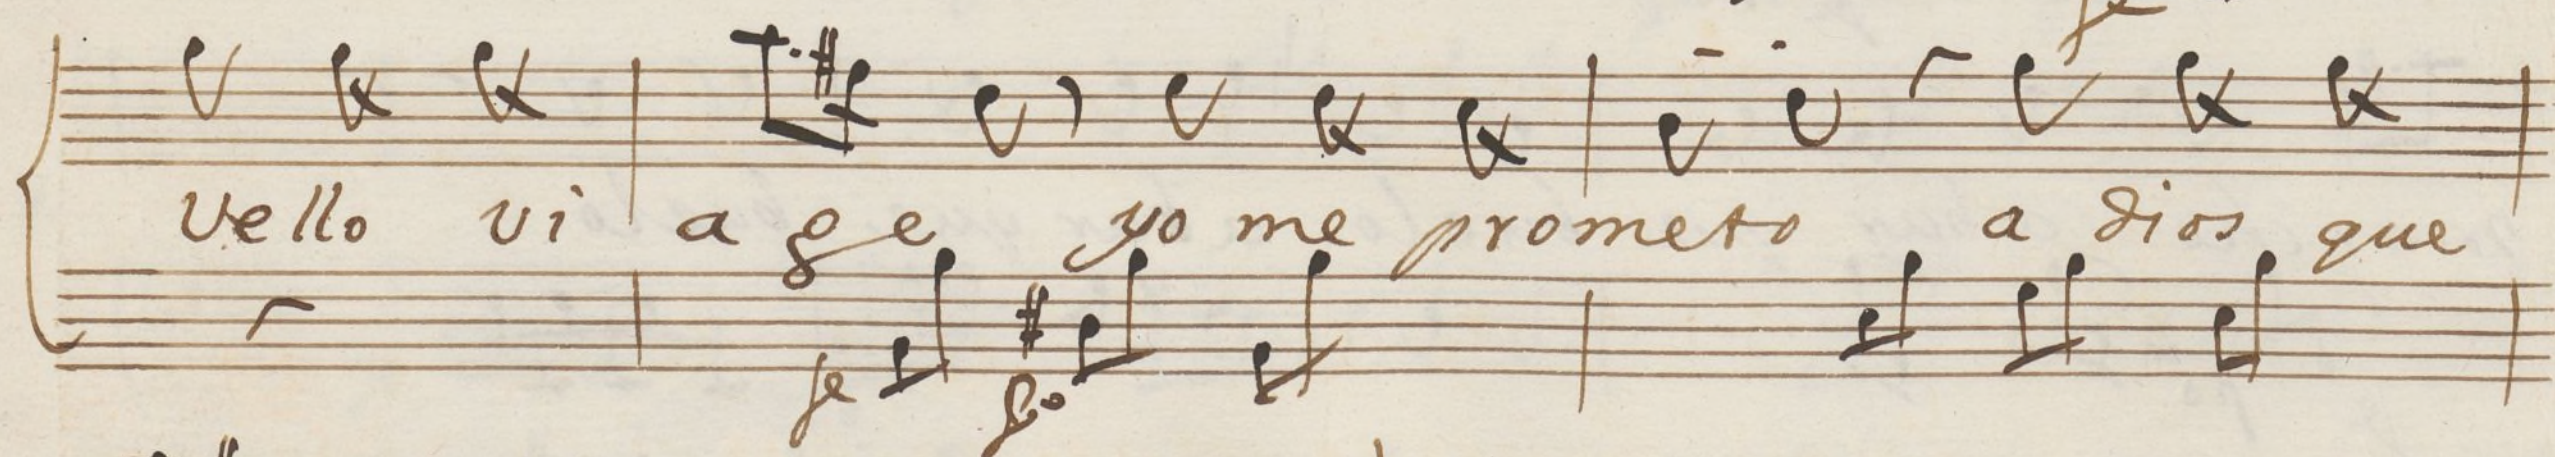 fe
vello vi age yo me prometo a dios que
fe po